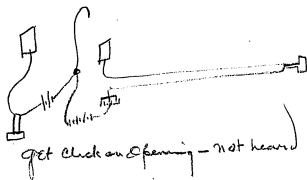 get click on opening – not heard